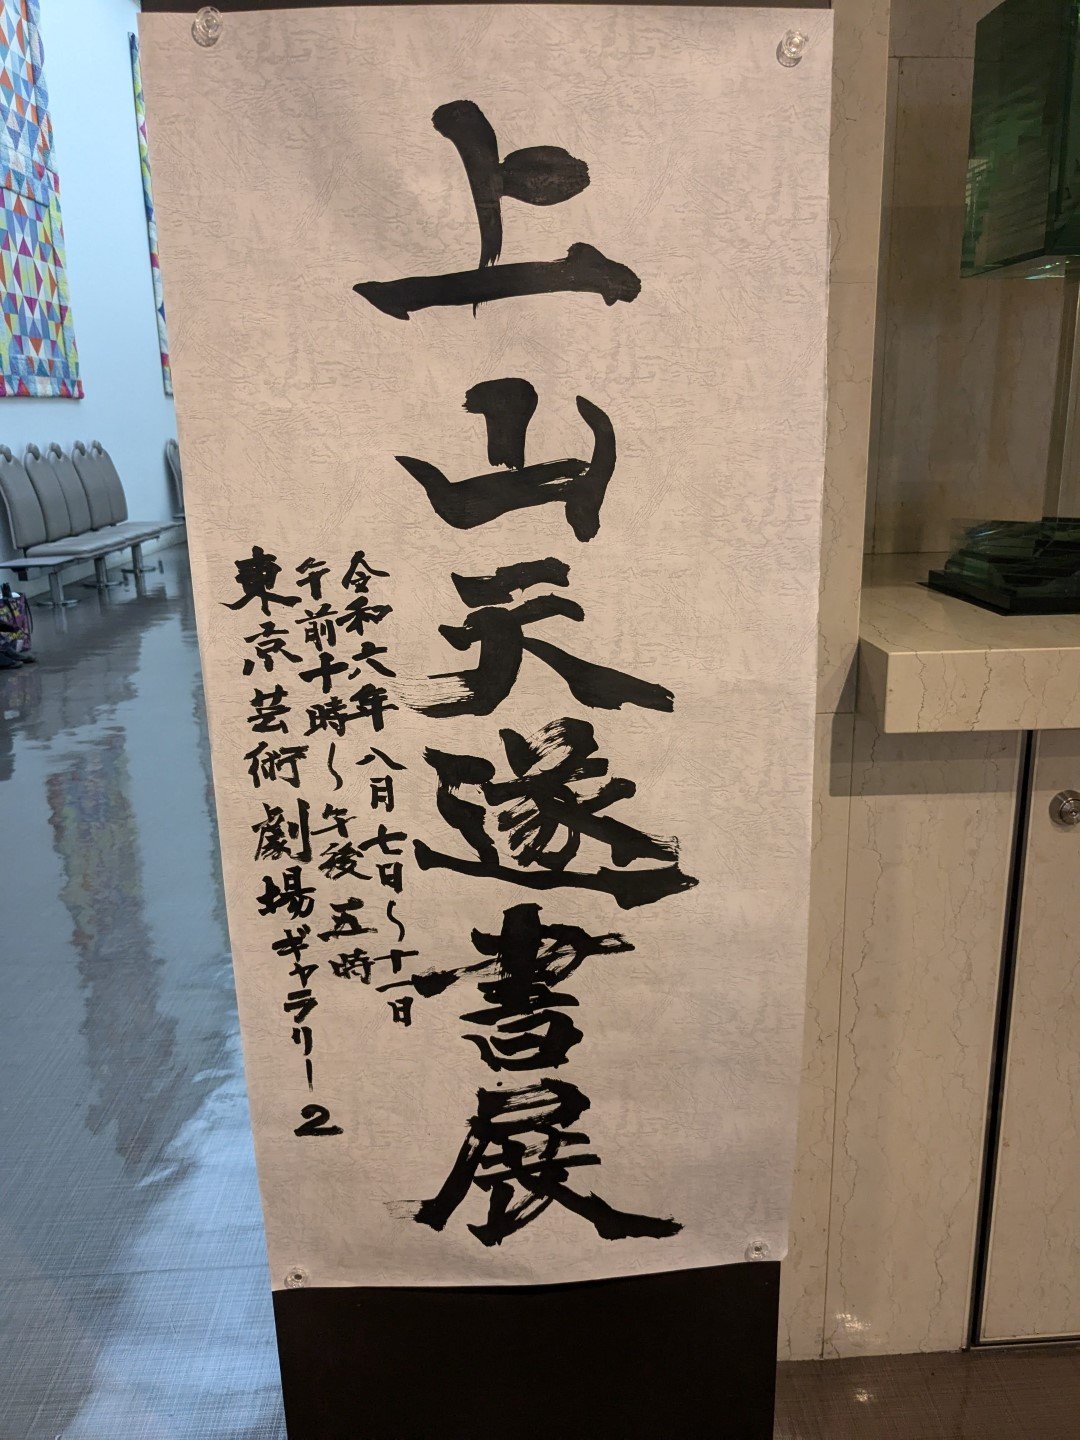 上山天遂書展
令和六年八月七日〜十一日
午前十時〜午後五時
東京芸術劇場ギャラリー2